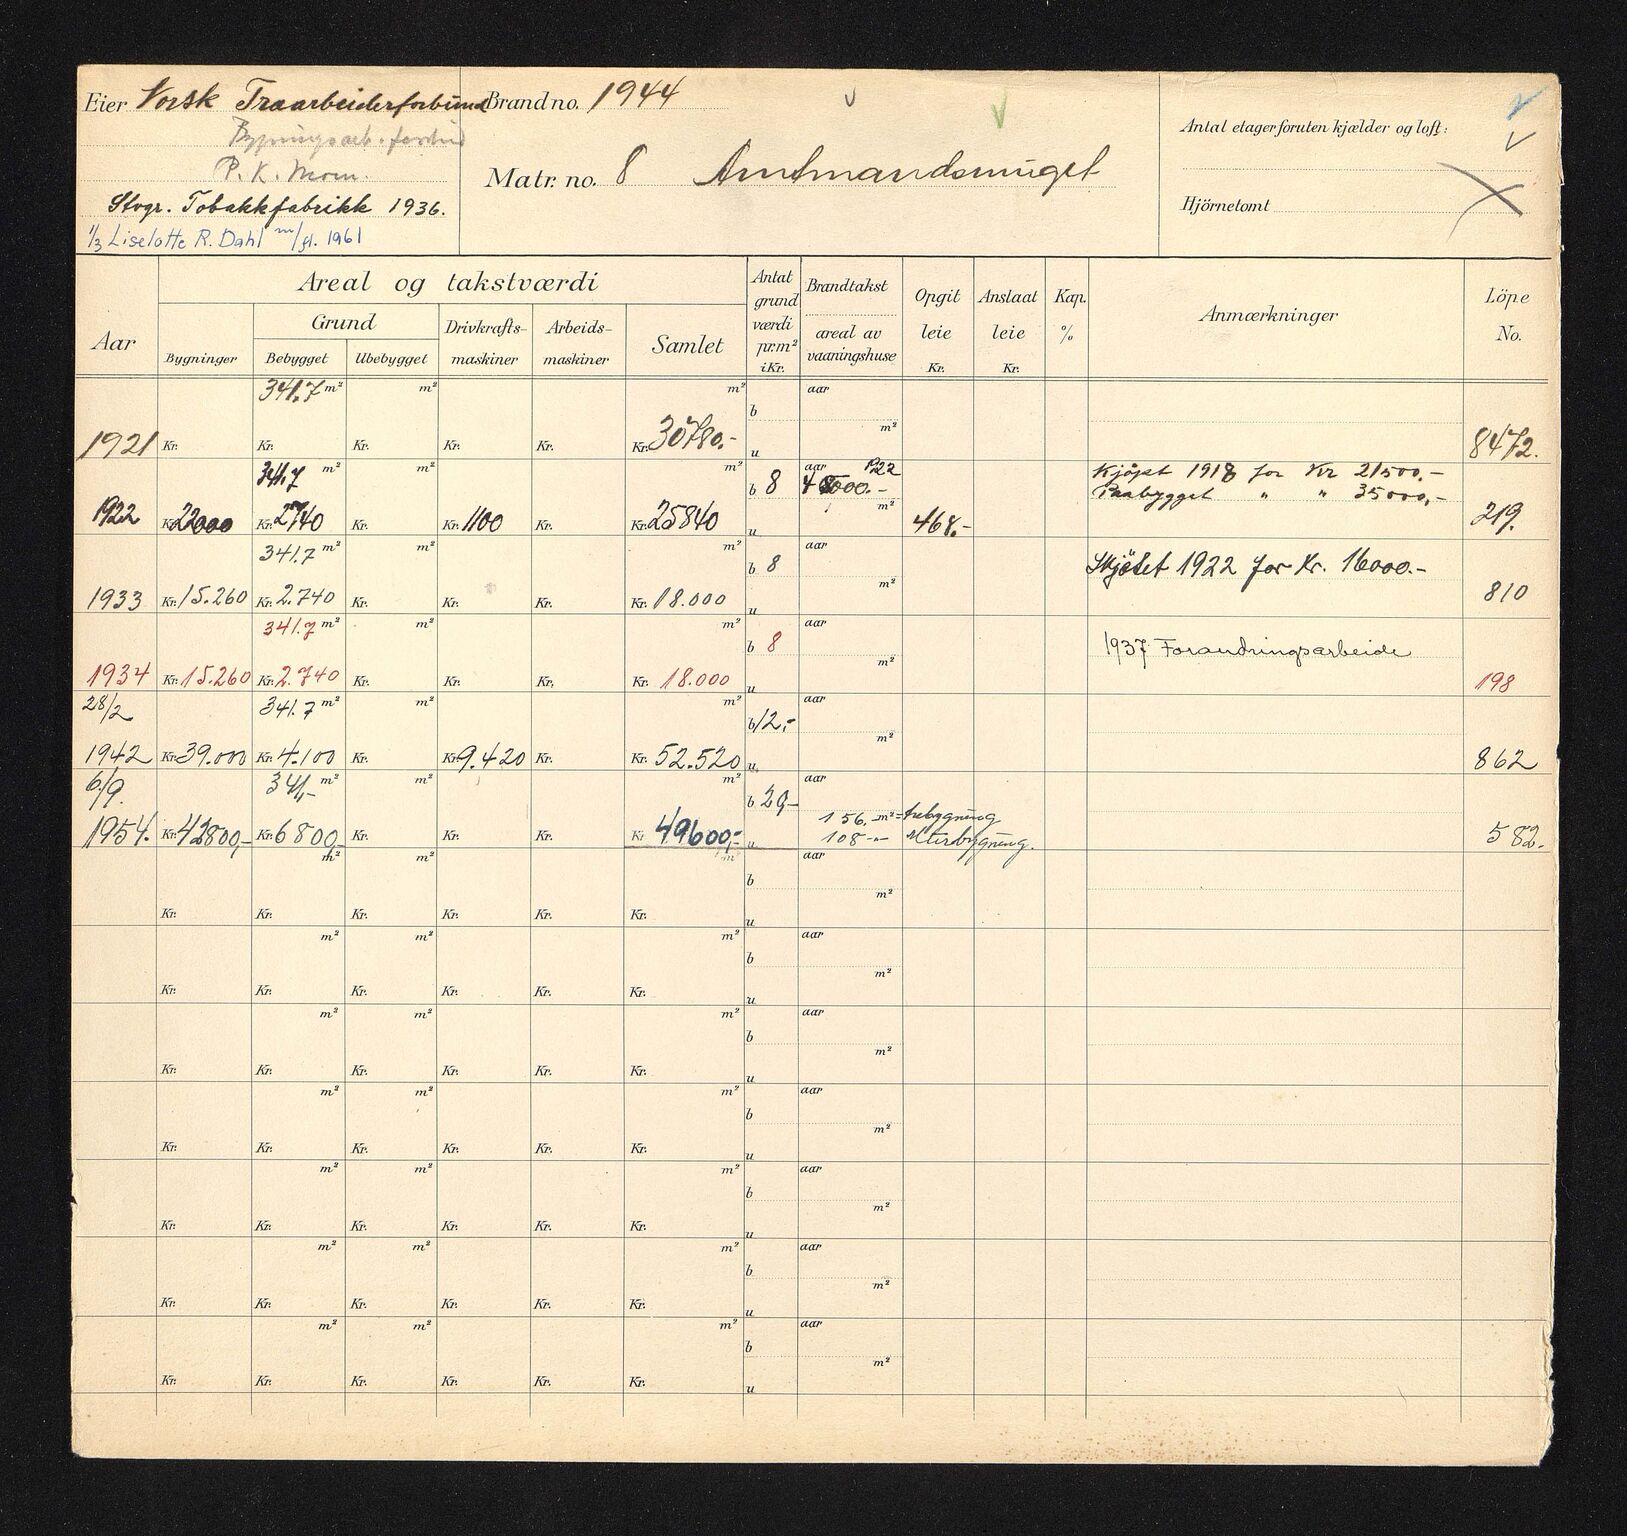 Eier Norsk Træarbeiderforbund
Bygningsarb. forbund
P. K. Mom.
Stvgr. Tobakkfabrikk 1936.
1/3 Liselotte R. Dahl m/fl. 1961
Brand no. 1944
Matr. no. 8 Amtmandsmuget
Antal etager foruten kjælder og loft:
Hjörnetomt
Aar
Areal og takstværdi
Bygninger
Grund
Bebygget
Ubebygget
Drivkrafts-maskiner
Arbeids-maskiner
Samlet
Antat grund værdi pr. m² i Kr.
Brandtakst
areal av vaaningshuse
Opgit leie Kr.
Anslaat leie Kr.
Kap. %
Anmærkninger
Löpe No.
341.7 m² m² m² aar
b
m²
1921 Kr. Kr. Kr. Kr. Kr. Kr. 30780.- u 8472.
341.7 m² m² m² b 8 aar 1922 Kjøpt 1918 for Kr 21500.-
Paabygget " " 35000,-
m²
1922 Kr. 22000 Kr. 2740 Kr. Kr. 1100 Kr. Kr. 25840 u 468.- 219.
341.7 m² m² m² b 8 aar Skjøtet 1922 for Kr. 16000.-
m²
1933 Kr. 15.260 Kr. 2.740 Kr. Kr. Kr. Kr. 18.000 u 810
341.7 m² m² m² b 8 aar 1937 Forandringsarbeide
m²
1934 Kr. 15.260 Kr. 2.740 Kr. Kr. Kr. Kr. 18.000 u 198
28/2 341.7 m² m² m² b 12,- aar
m²
1942 Kr. 39.000 Kr. 4.100 Kr. Kr. 9.420 Kr. Kr. 52.520 u 862
6/9. 341,- m² m² m² b 20,- aar
156. m² = trebygning
108 -"- Murbygning.
1954. Kr. 42800,- Kr. 6800,- Kr. Kr. Kr. Kr. 49600,- u 582.
m² m² m² aar
b
m²
Kr. Kr. Kr. Kr. Kr. Kr. u
m² m² m² aar
b
m²
Kr. Kr. Kr. Kr. Kr. Kr. u
m² m² m² aar
b
m²
Kr. Kr. Kr. Kr. Kr. Kr. u
m² m² m² aar
b
m²
Kr. Kr. Kr. Kr. Kr. Kr. u
m² m² m² aar
b
m²
Kr. Kr. Kr. Kr. Kr. Kr. u
m² m² m² aar
b
m²
Kr. Kr. Kr. Kr. Kr. Kr. u
m² m² m² aar
b
m²
Kr. Kr. Kr. Kr. Kr. Kr. u